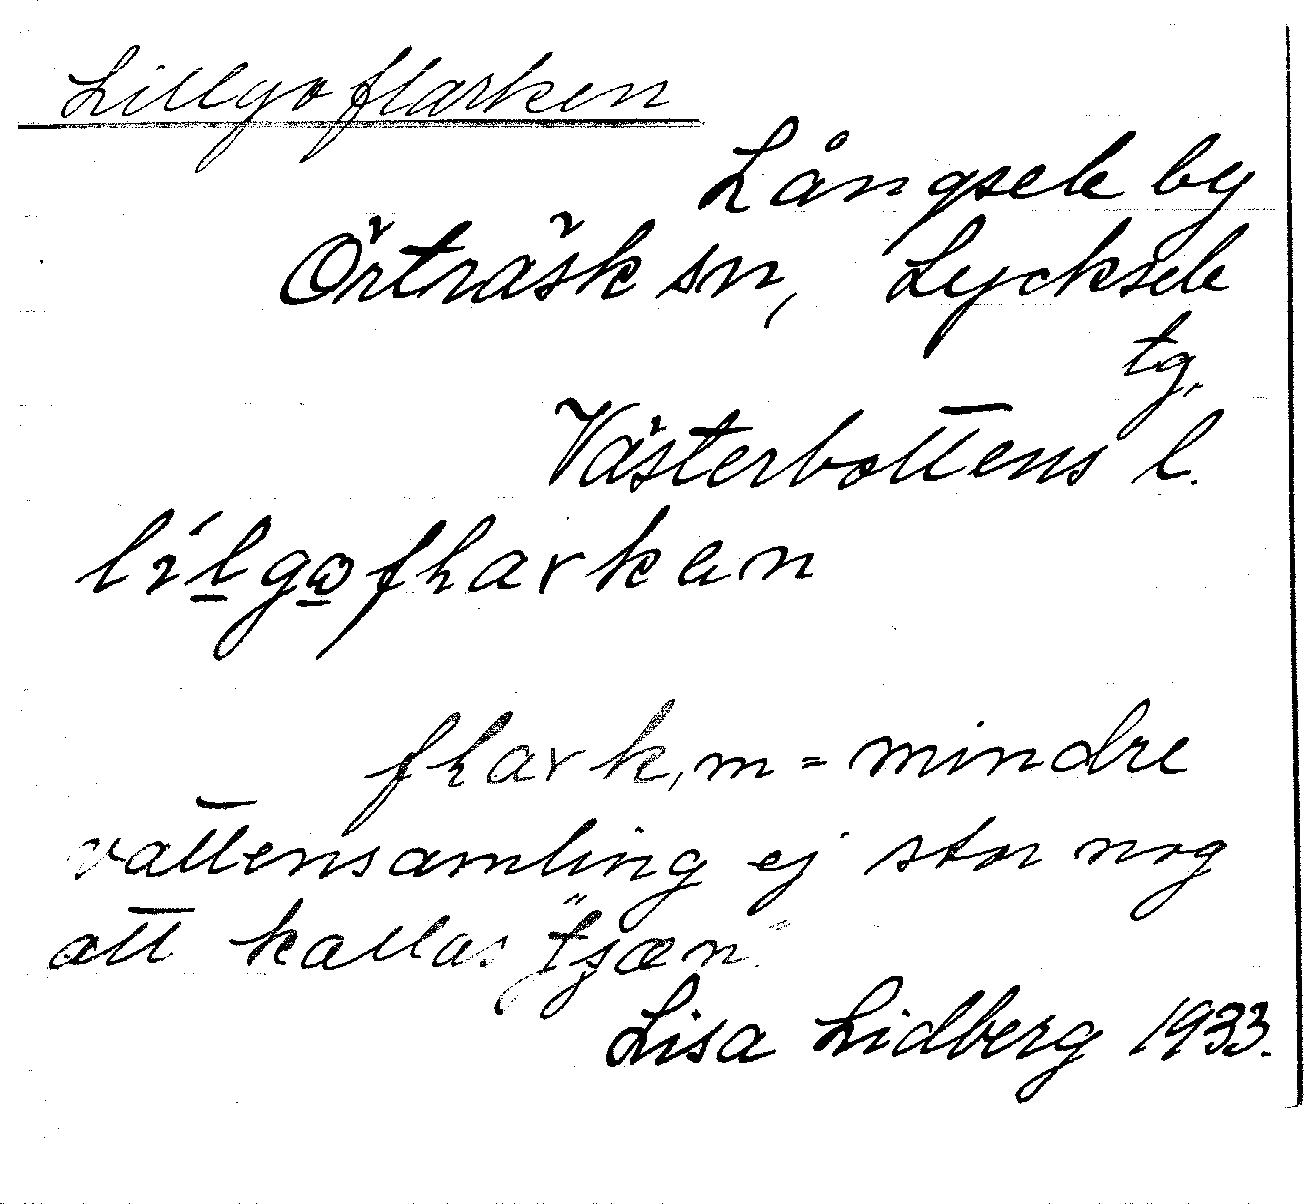 Lillgoflarken
Långsele by
Örträsk sn, Lycksele
tg.
Västerbottens l.
lílgωflarkan
flark, m = mindre
vattensamling ej stor nog
att kallas "tjæn"
Lisa Lidberg 1933.